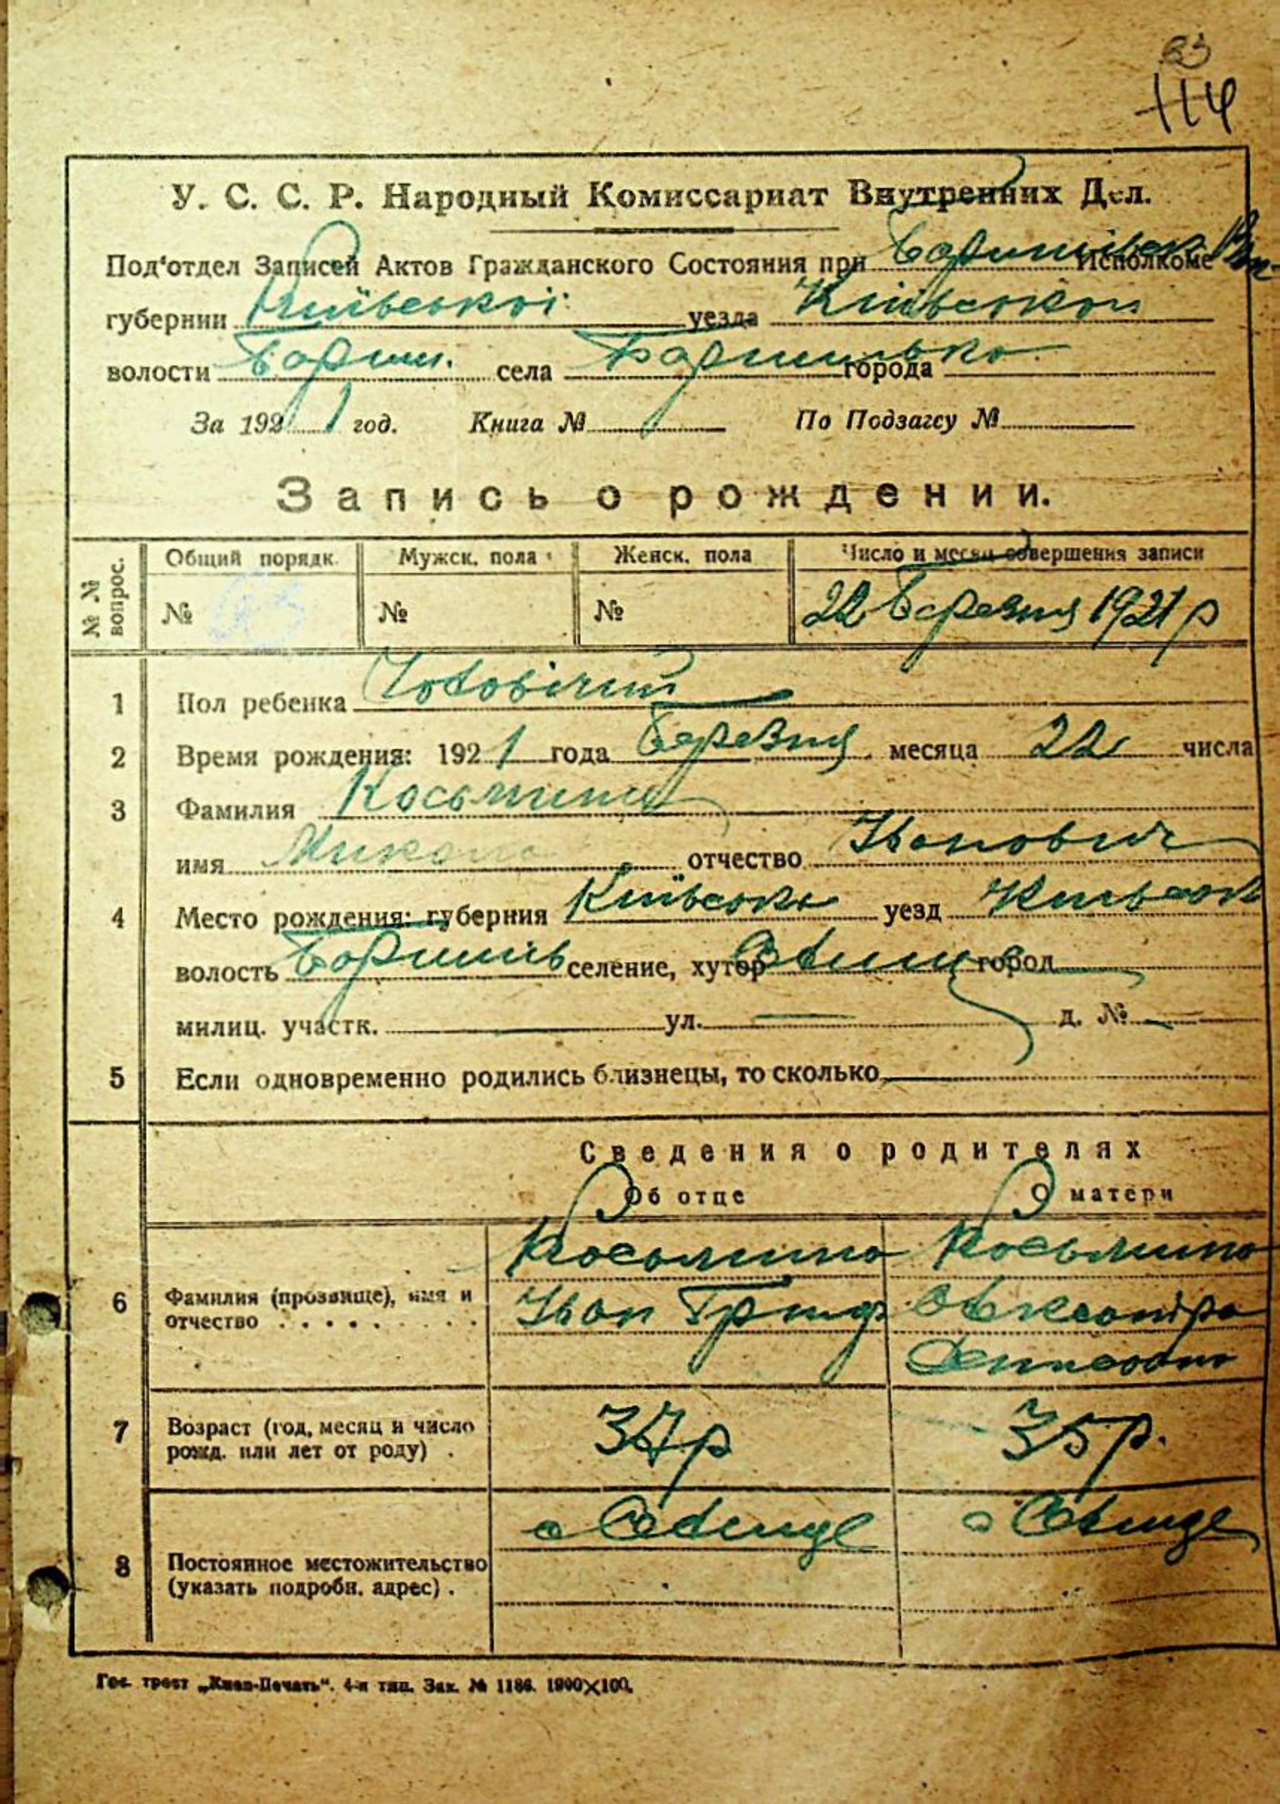 114
У. С. С. Р. Народный Комиссариат Внутренних Дел.
Под'отдел Записей Актов Гражданского Состояния при Исполкоме
губернии Київської уезда Київського
волости Бориш. села города
За 1921 год. Книга № По Подзагсу №
Запись о рождении.
№ № вопрос. Общий порядк. Мужск. пола Женск. пола Число и месяц совершения записи
№ 93 № № 22 Березня 1921 р
1 Пол ребенка Чоловічий
2 Время рождения: 1921 года Березня месяца 22 числа
3 Фамилия Косьмина
имя Микола отчество Іванович
4 Место рождения: губерния Київська уезд Київськ
волость Баришів селение, хутор город
милиц. участк. ул. д. №
5 Если одновременно родились близнецы, то сколько
Сведения о родителях
Об отце О матери
6 Фамилия (прозвище), имя и отчество Косьмина Косьмина
Іван Григ Олександра
7 Возраст (год, месяц и число рожд. или лет от роду) 37 р 35 р.
8 Постоянное местожительство (указать подробн. адрес).
Гос. трест „Киев-Печать“. 4-я тип. Зак. № 1186. 1900×100.